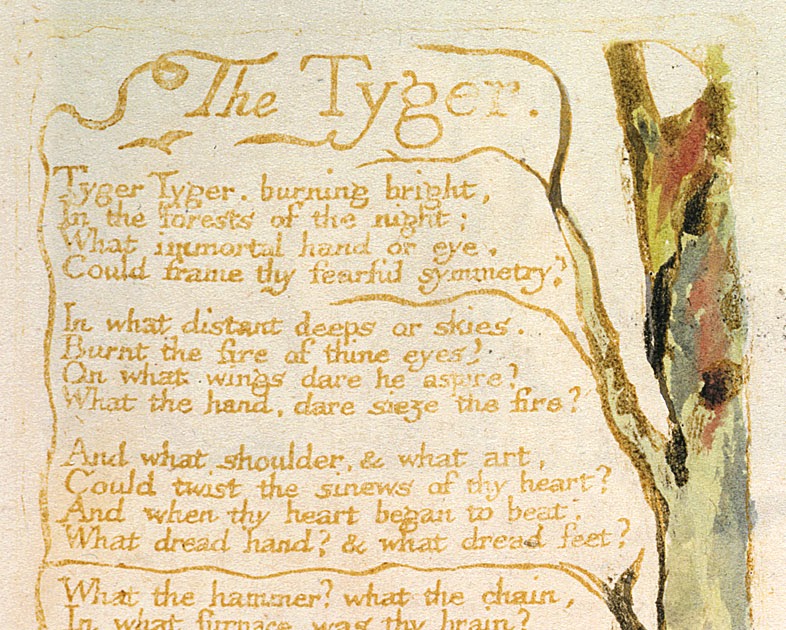 The Tyger.
Tyger Tyger. burning bright,
In the forests of the night;
What immortal hand or eye.
Could frame thy fearful symmetry?
In what distant deeps or skies.
Burnt the fire of thine eyes?
On what wings dare he aspire?
What the hand, dare sieze the fire?
And what shoulder, & what art,
Could twist the sinews of thy heart?
And when thy heart began to beat,
What dread hand? & what dread feet?
What the hammer? what the chain,
In what furnace was thy brain?